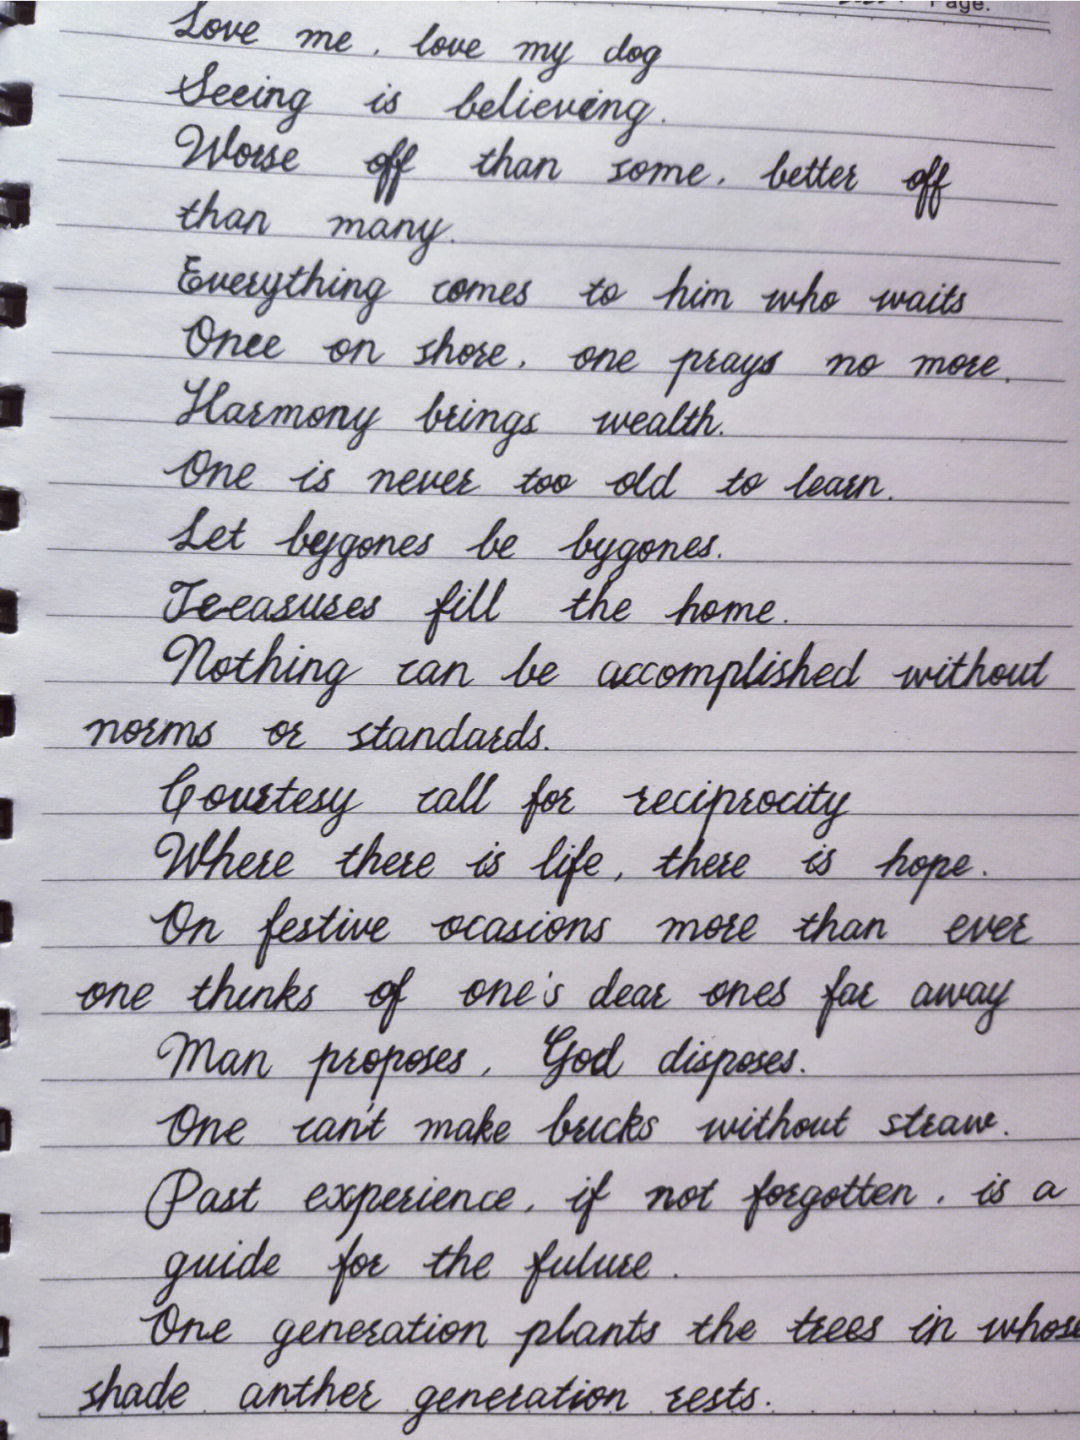 Page.
Love me, love my dog
Seeing is believing.
Worse off than some, better off
than many.
Everything comes to him who waits
Once on shore, one prays no more.
Harmony brings wealth.
One is never too old to learn.
Let bygones be bygones.
Treasures fill the home.
Nothing can be accomplished without
norms or standards.
Courtesy call for reciprocity
Where there is life, there is hope.
On festive ocasions more than ever
one thinks of one's dear ones far away
Man proposes, God disposes.
One can't make bricks without straw.
Past experience, if not forgotten, is a
guide for the future.
One generation plants the trees in whose
shade anther generation rests.